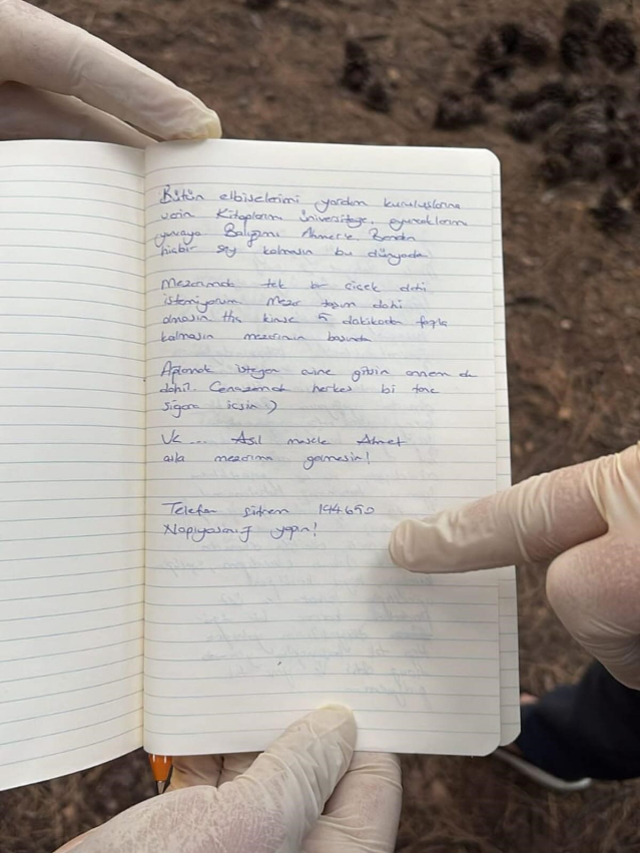 Bütün elbiselerimi yardım kuruluşlarına
verin Kitaplarımı üniversiteye, oyuncaklarımı
yuvaya Balığımı Ahmet'e. Benden
hiçbir şey kalmasın bu dünyada
Mezarımda tek bir çiçek dahi
istemiyorum Mezar taşım dahi
olmasın Hiç kimse 5 dakikadan fazla
kalmasın mezarımın başında
Ağlamak isteyen evine gitsin annem de
dahil. Cenazemde herkes bi tane
sigara içsin :)
Ve... Asıl mesele Ahmet
asla mezarıma gelmesin!
Telefon şifrem 194650
Napıyosanız yapın!